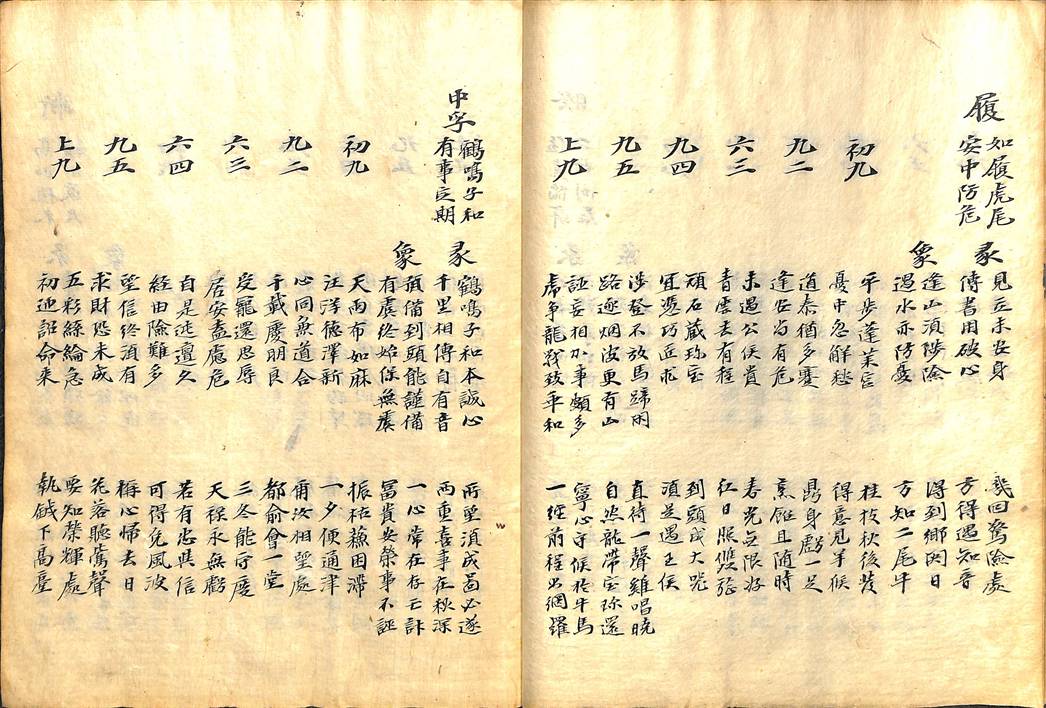 履
如履虎尾
安中防危
彖
見立未安身
幾回驚險處
傳書用破心
方得遇知音
象
逢山須陟險
得到鄉閭日
遇水亦防憂
方知二尾牛
初九
平步蓬萊宮
桂枝秋後發
憂中忽解愁
得意兔羊候
九二
道泰猶多蹇
鼎身虧一足
逢安尚有危
烹飪且隨時
六三
未遇公侯貴
春光无限好
青雲去有程
紅日照雙旌
九四
頑石藏珍宝
到頭成大器
宜憑巧匠求
須是遇王侯
九五
涉登不放馬蹄閑
直待一聲雞唱曉
路逐烟波更有山
自然龍帶宝珍還
上九
誣妄相加事頗多
寧心守候於牛馬
虎争龍戰致平和
一任前程出網羅
中孚
鶴鳴子和
有事定期
彖
鶴鳴子和本誠心
所望須成啚必遂
千里相傳自有音
兩重喜事在秋深
象
預備到頭能謹備
一心常在存亡訃
有虞終始保無虞
富貴安榮事不誣
初九
天雨布如麻
振枯蘇困滯
汪洋德澤新
一夕便通津
九二
心同魚道合
爾汝相望處
千載慶明良
都俞會一堂
六三
受寵還思辱
三冬能守度
居安盍慮危
天祿永無虧
六四
自是迍邅久
若有忠與信
經由險難多
可得免風波
九五
望信終須有
稱心帰去日
求財恐未成
花落聽鶯聲
上九
五彩絲綸急
要知榮輝處
初迎詔命來
執鉞下高臺